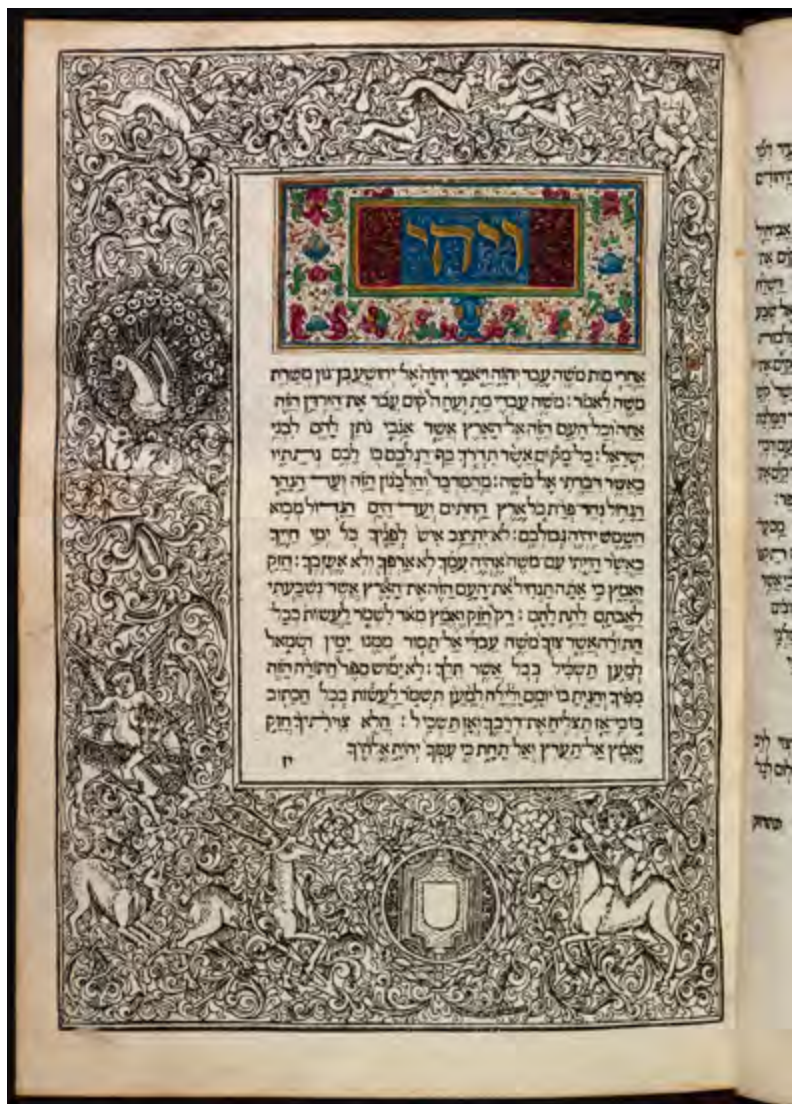 ויהי
אחרי מות משה עבד יהוה ויאמר יהוה אל יהושע בן נון משרת
משה לאמר: משה עבדי מת ועתה קום עבר את הירדן הזה
אתה וכל העם הזה אל הארץ אשר אנכי נתן להם לבני
ישראל: כל מקום אשר תדרך כף רגלכם בו לכם נתתיו
כאשר דברתי אל משה: מהמדבר והלבנון הזה ועד הנהר
הגדול נהר פרת כל ארץ החתים ועד הים הגדול מבוא
השמש יהיה גבולכם: לא יתיצב איש לפניך כל ימי חייך
כאשר הייתי עם משה אהיה עמך לא ארפך ולא אעזבך: חזק
ואמץ כי אתה תנחיל את העם הזה את הארץ אשר נשבעתי
לאבתם לתת להם: רק חזק ואמץ מאד לשמר לעשות ככל
התורה אשר צוך משה עבדי אל תסור ממנו ימין ושמאל
למען תשכיל בכל אשר תלך: לא ימש ספר התורה הזה
מפיך והגית בו יומם ולילה למען תשמר לעשות ככל הכתוב
בו כי אז תצליח את דרכך ואז תשכיל: הלא צויתיך חזק
ואמץ אל תערץ ואל תחת כי עמך יהוה אלהיך
יז